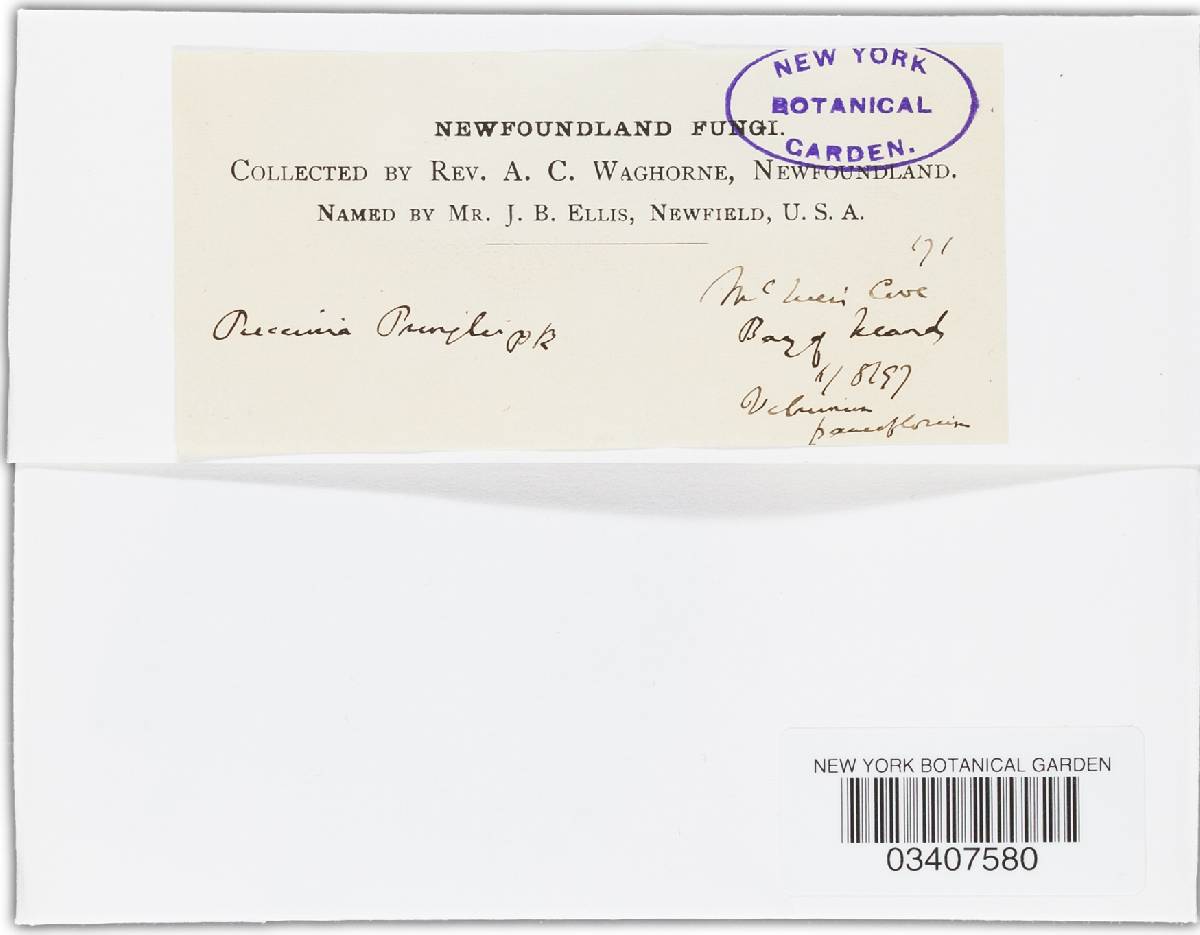 NEW YORK
BOTANICAL
GARDEN.
NEWFOUNDLAND FUNGI.
COLLECTED BY REV. A. C. WAGHORNE, NEWFOUNDLAND.
NAMED BY MR. J. B. ELLIS, NEWFIELD, U. S. A.
171
Mc Cove
Puccinia Pk
Bay of
8/97
Viburnum
pauciflorum
NEW YORK BOTANICAL GARDEN
03407580